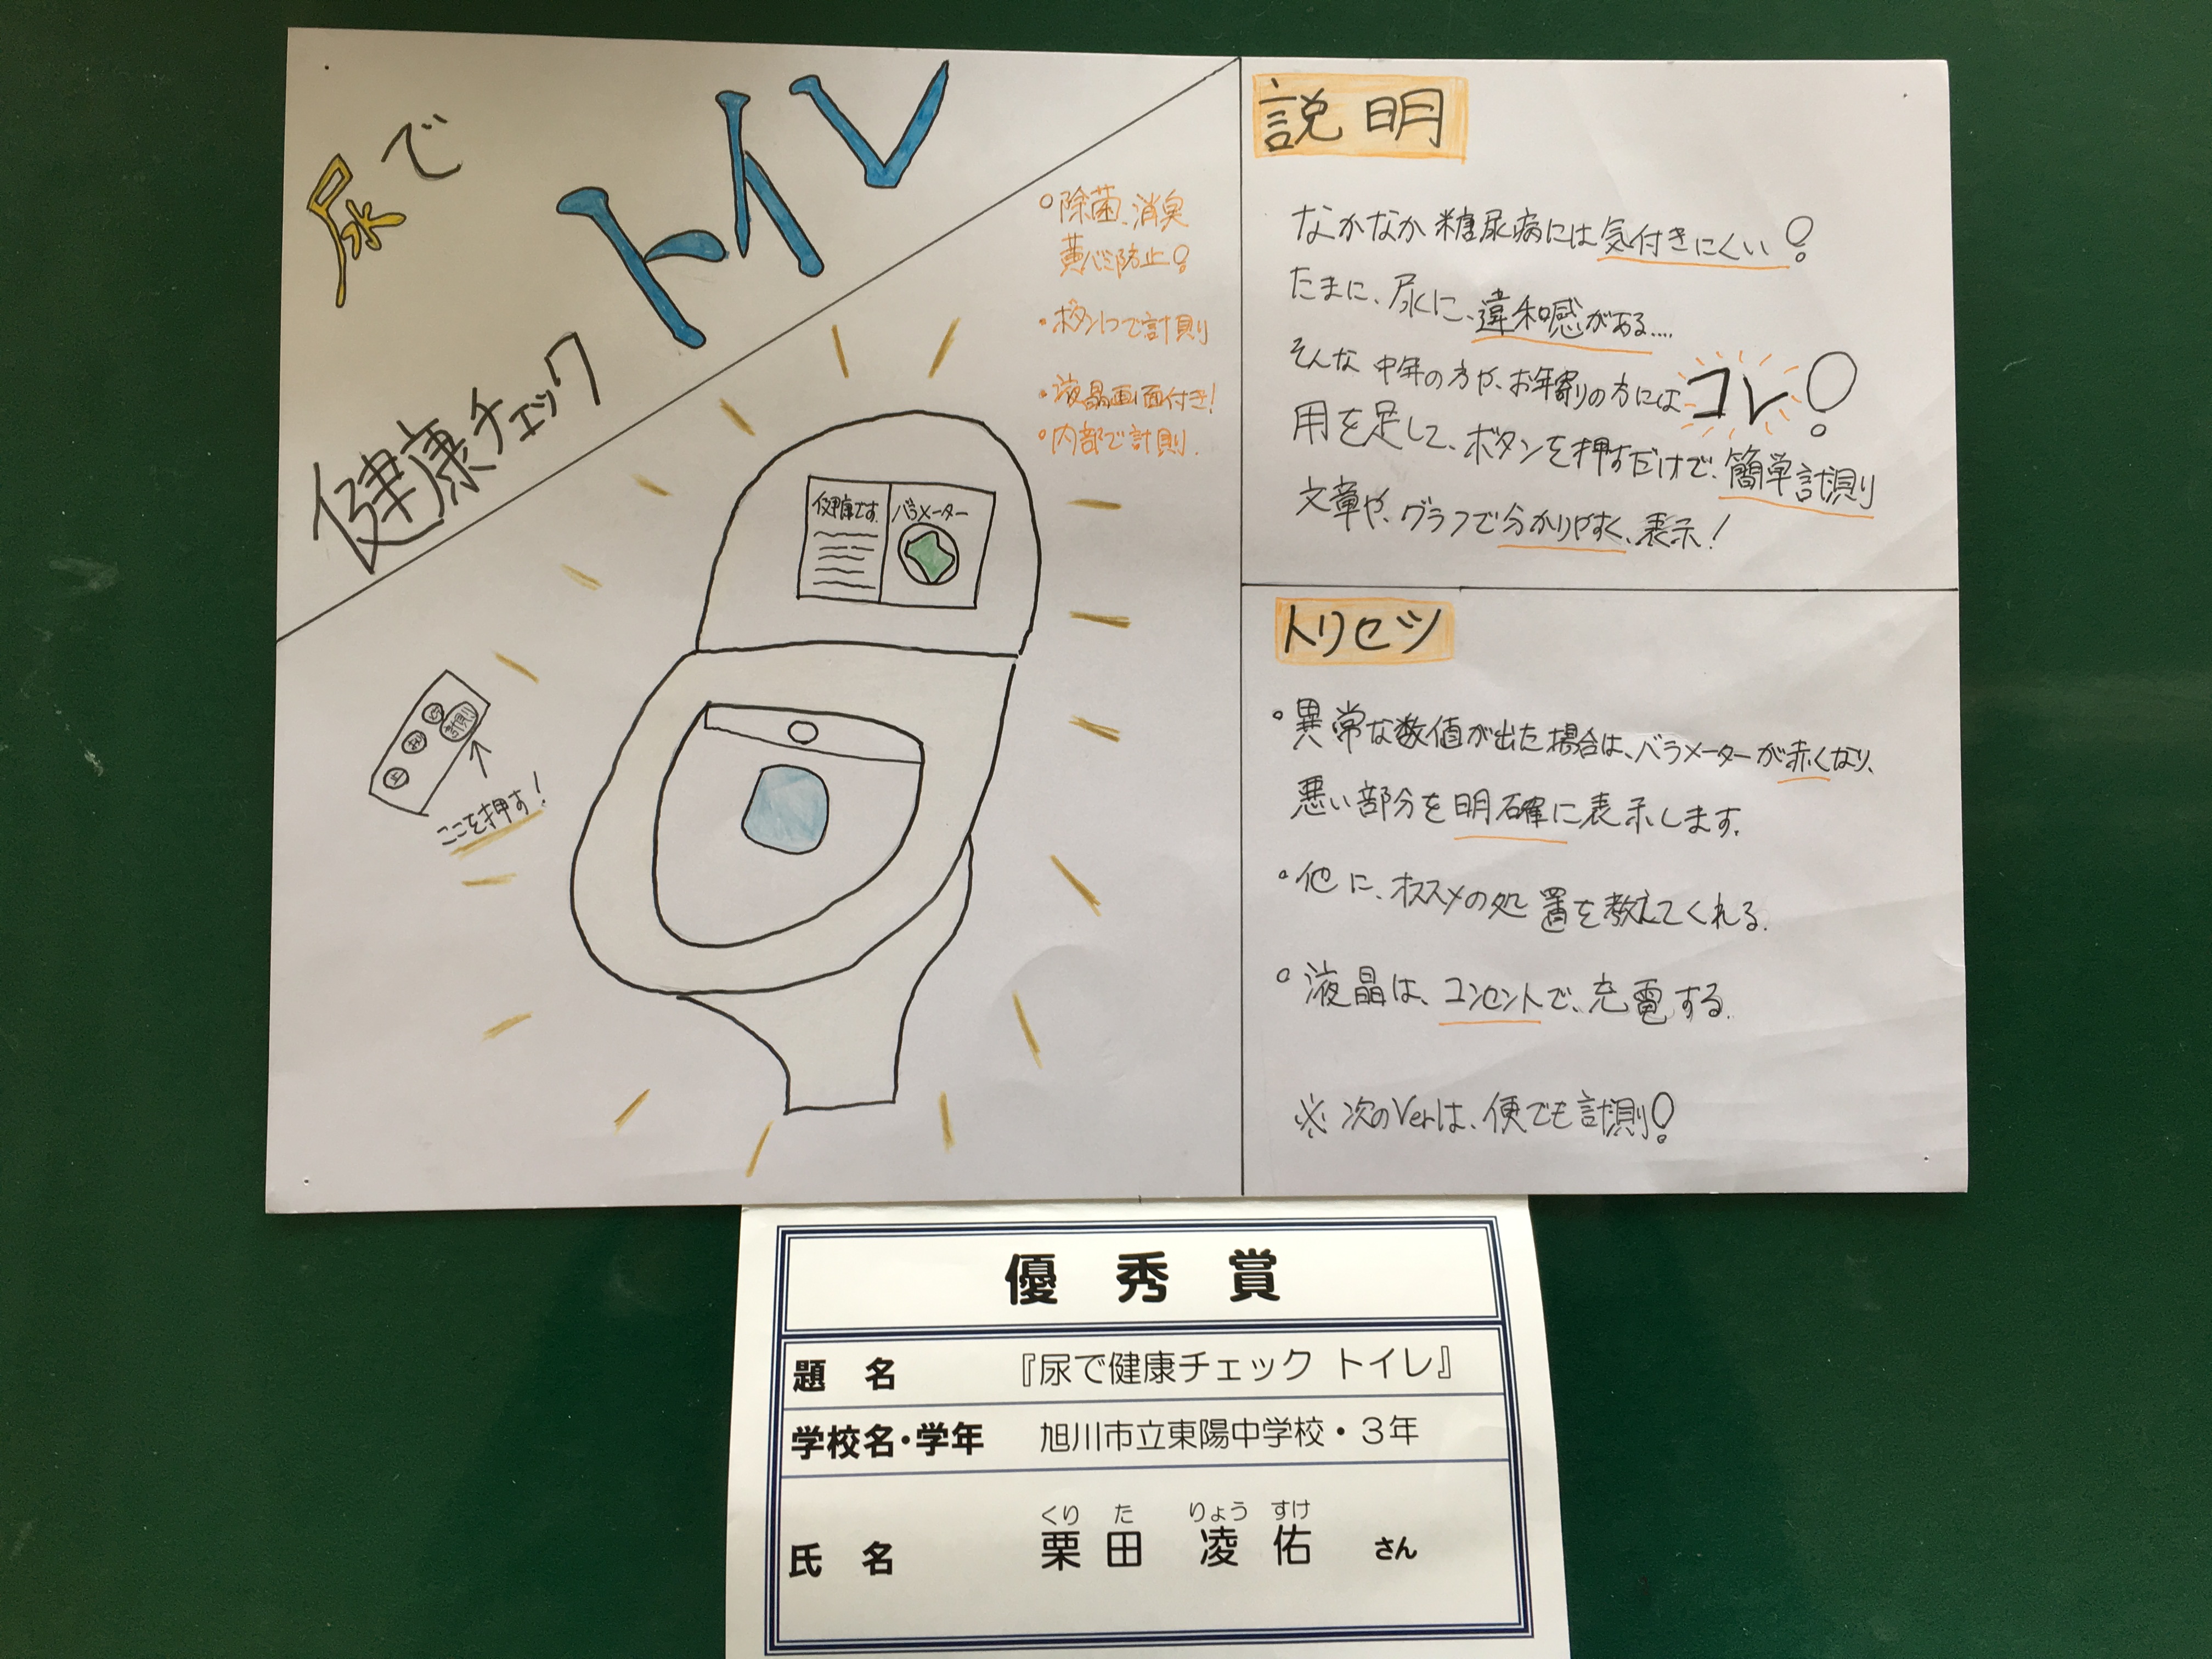 尿で
健康チェック
トイレ
○除菌、消臭
黄バミ防止!
・ボタン1つで計測
・液晶画面付き!
○内部で計測.
健康です.
バラメーター
計測
ここを押す!
説明
なかなか糖尿病には気付きにくい!
たまに、尿に、違和感がある....
そんな中年の方や、お年寄りの方にはコレ!
用を足して、ボタンを押すだけで、簡単計測
文章や、グラフで分かりやすく、表示!
トリセツ
○異常な数値が出た場合は、バラメーターが赤くなり、
悪い部分を明確に表示します.
○他に、オススメの処置を教えてくれる.
○液晶は、コンセントで、充電する.
※次のVerは、便でも計測!
優秀賞
題名 『尿で健康チェック トイレ』
学校名・学年 旭川市立東陽中学校・3年
くり た りょう すけ
氏名 栗田 凌佑 さん